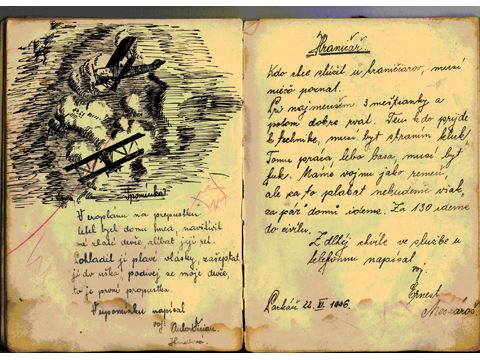 Spomienka!
V eroplánu na prepustku
letel bych domu hned, navštívil
mé zlaté děvče, zlíbal její ret.
Pohladil jí plavé vlásky, zašeptal
jí do uška, podívej se moje děvče,
to je první propustka.
V upomínku napísal
voj.
Hraničář.
Kdo chce slúžit u hraničiarov, musí
niečo poznat.
Pri najmenšem 3 meštianky a
potom dobre rvat. Ten kdo príjde
k technike, musí byt straním kluk!
Tomu práca, lebo basa, musí byt
fuk. Máme vojnu jako remeň,
ale za to plakat nebudeme však,
za pár domú ideme. Za 130 ideme
do civilu.
Z dlhej chvíle ve službe u
telefonu napísal
voj.
Ernest
Mészáros.
Parkáň 22. VI. 1956.